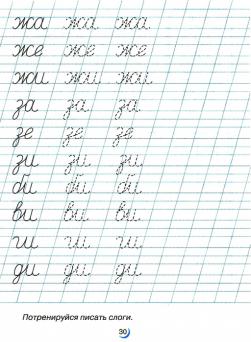 жа жа жа
же же же
жи жи жи
за за за
зе зе зе
зи зи зи
би би би
ви ви ви
ги ги ги
ди ди ди
Потренируйся писать слоги.
30